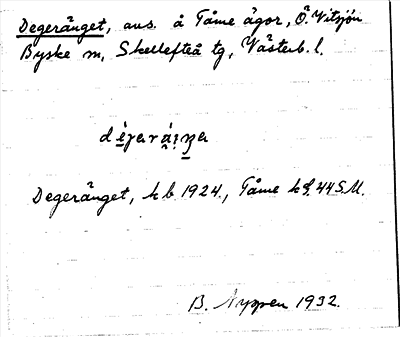 Degeränget, aus. å Tåme ägor, Ö. Vitsjön
Byske sn, Skellefteå tg, Västerb. l.
Degeränget, k b 1924., Tåme
B. Nyppen 1932.